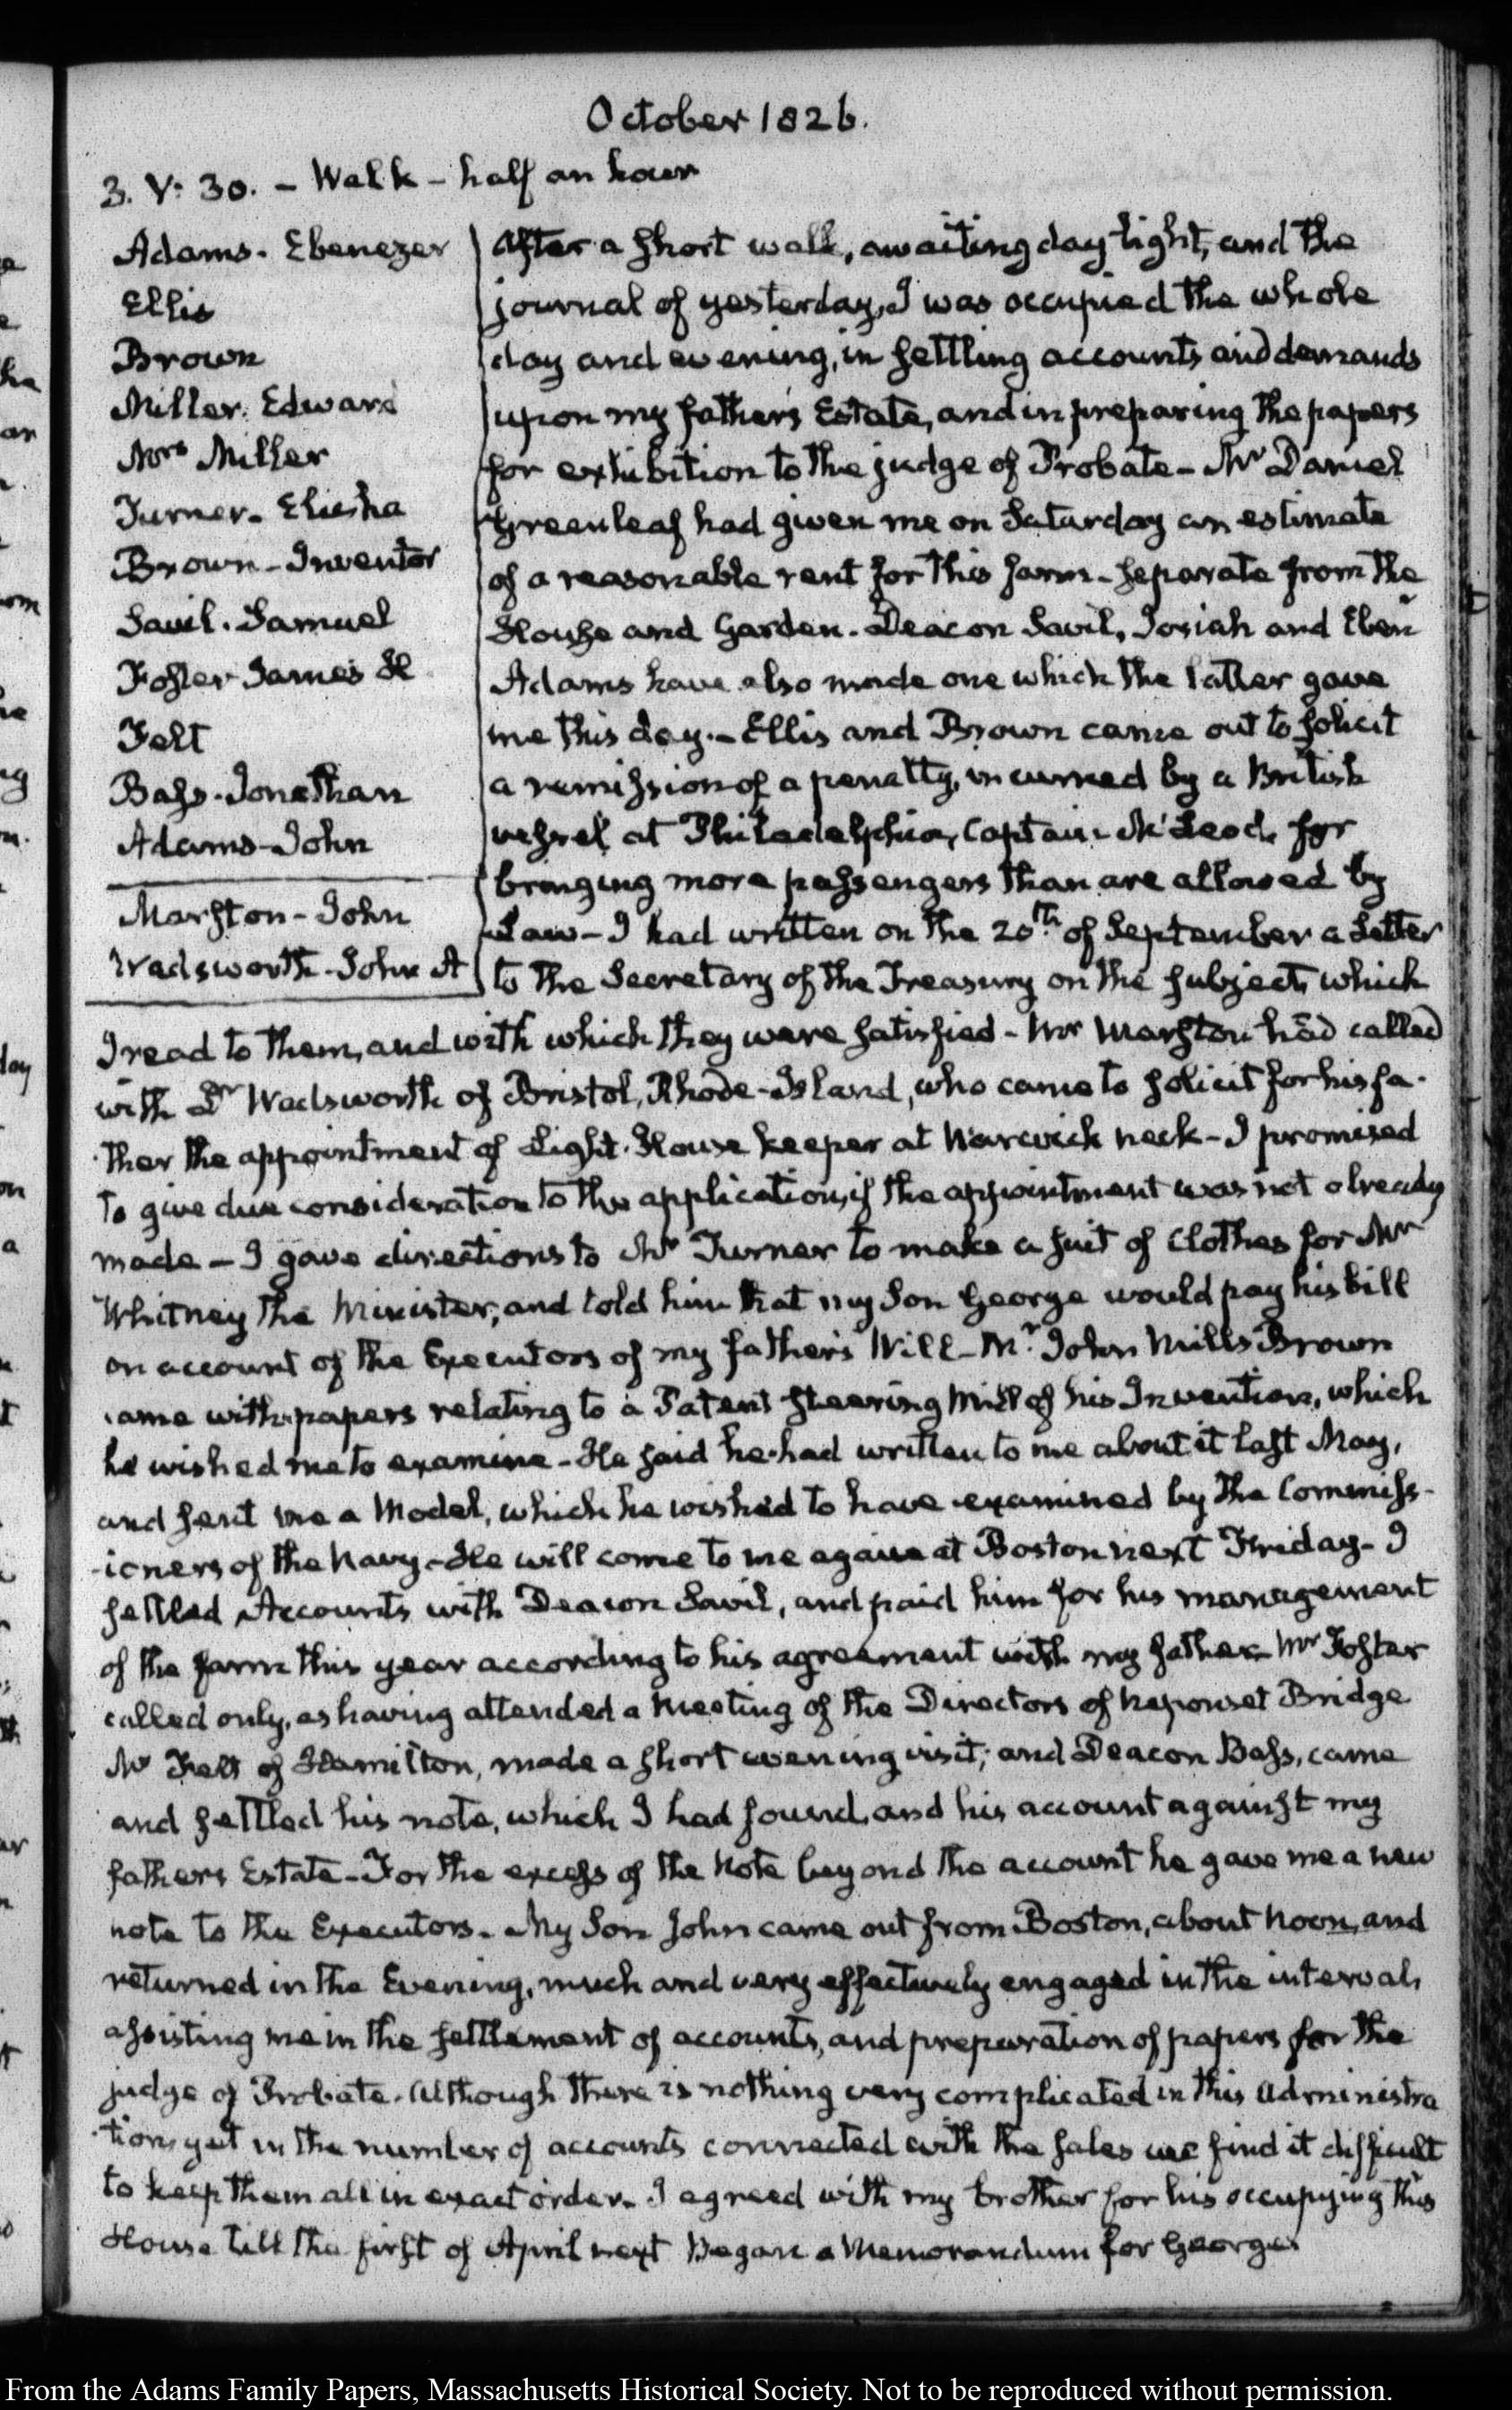 October 1826.
3. V: 30. - Walk - half an hour
Adams. Ebenezer
Ellis
Brown
Miller. Edward
Mrs Miller
Turner. Elisha
Brown - Inventor
Savil. Samuel
Foster James H
Felt
Bass. Jonathan
Adams - John
Marston - John
Wadsworth. John A
After a short walk, awaiting day light, and the
journal of yesterday, I was occupied the whole
day and evening, in settling accounts and demands
upon my father's Estate, and in preparing the papers
for exhibition to the judge of Probate - Mr Daniel
Greenleaf had given me on Saturday an estimate
of a reasonable rent for this farm - separate from the
House and Garden. Deacon Savil, Josiah and Eben
Adams have also made one which the latter gave
me this day. - Ellis and Brown came out to solicit
a remission of a penalty, incurred by a British
vessel at Philadelphia, Captain McLeod, for
bringing more passengers than are allowed by
Law - I had written on the 20th of September a Letter
to the Secretary of the Treasury on the subject, which
I read to them, and with which they were satisfied - Mr Marston had called
with Dr Wadsworth of Bristol, Rhode-Island, who came to solicit for his fa-
ther the appointment of Light-House keeper at Warwick neck - I promised
to give due consideration to the application, if the appointment was not already
made - I gave directions to Mr Turner to make a suit of Clothes for Mr
Whitney the Minister, and told him that my Son George would pay his bill
on account of the Executors of my father's Will - Mr. John Mills Brown
came with papers relating to a Patent steering Mill of his Invention, which
he wished me to examine - He said he had written to me about it last May,
and sent me a Model, which he wished to have examined by the Commiss-
-ioners of the Navy - He will come to me again at Boston next Friday - I
settled Accounts with Deacon Savil, and paid him for his management
of the farm this year according to his agreement with my father - Mr Foster
called only, as having attended a Meeting of the Directors of Neponset Bridge
Mr Felt of Hamilton, made a short evening visit; and Deacon Bass, came
and settled his note, which I had found, and his account against my
fathers Estate - For the excess of the Note beyond the account he gave me a new
note to the Executors. My Son John came out from Boston, about Noon, and
returned in the Evening, much and very effectively engaged in the interval,
assisting me in the settlement of accounts, and preparation of papers for the
judge of Probate. Although there is nothing very complicated in this Administra
-tion, yet in the number of accounts connected with the sales we find it difficult
to keep them all in exact order. I agreed with my brother for his occupying this
House till the first of April next Began a Memorandum for George.
From the Adams Family Papers, Massachusetts Historical Society. Not to be reproduced without permission.